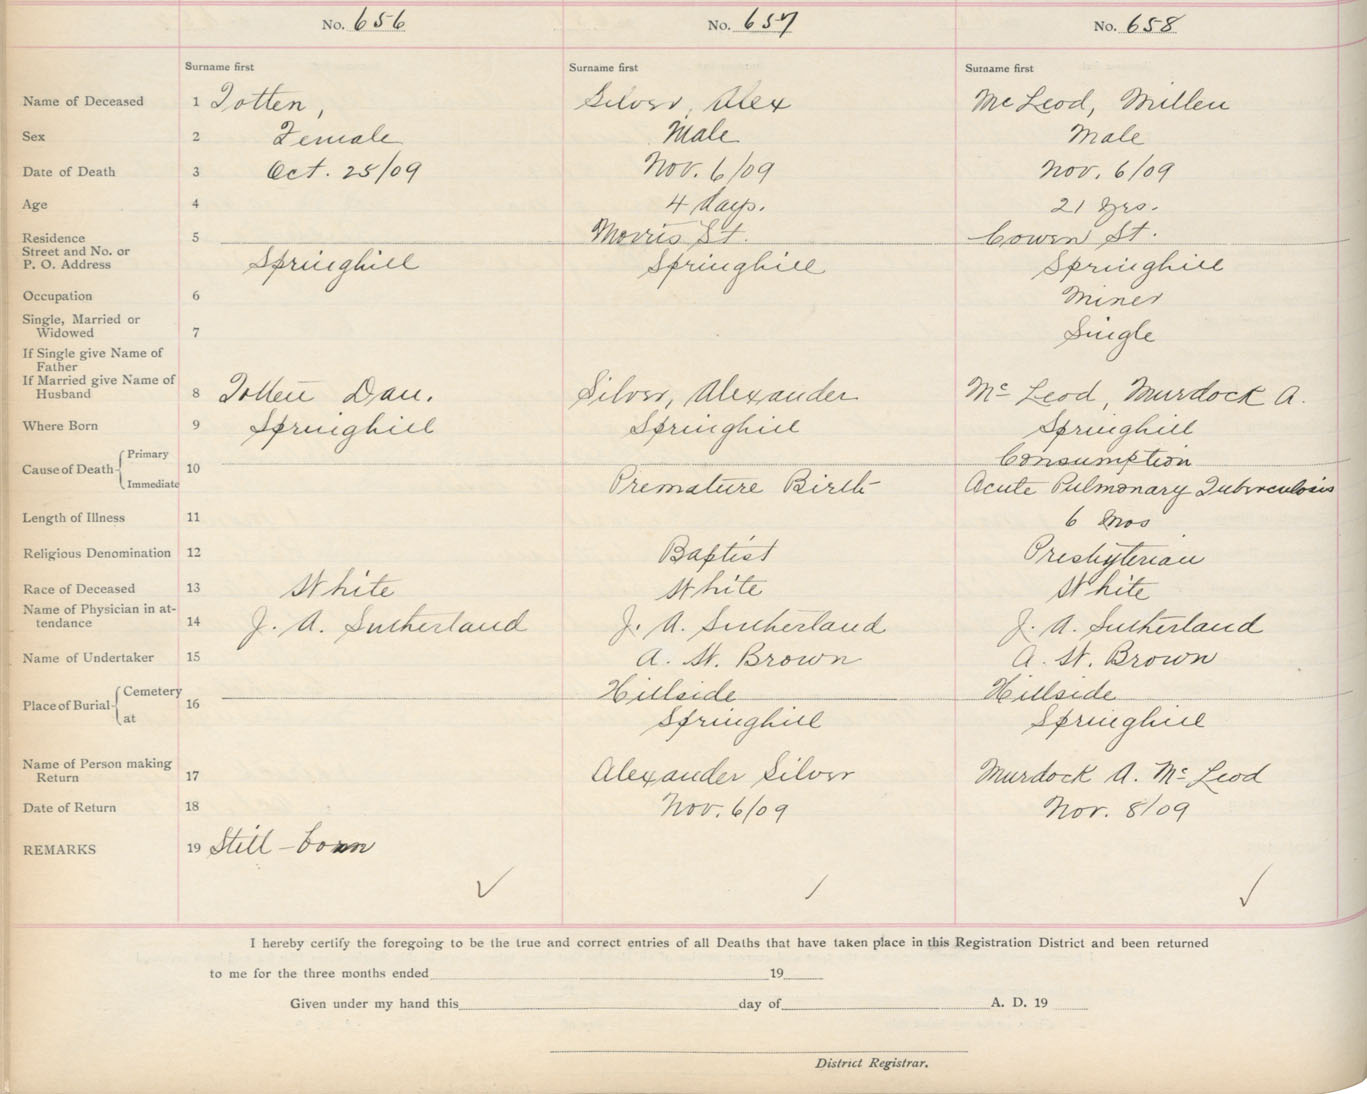 No. 656 No. 657 No. 658
Surname first Surname first Surname first
Name of Deceased 1 Totten, Silver, Alex McLeod, Millen
Sex 2 Female Male Male
Date of Death 3 Oct. 25/09 Nov. 6/09 Nov. 6/09
Age 4 4 days. 21 yrs.
Residence 5 Morris St. Cowen St.
Street and No. or
P. O. Address Springhill Springhill Springhill
Occupation 6 Miner
Single, Married or
Widowed 7 Single
If Single give Name of
Father
If Married give Name of
Husband 8 Totten Dan. Silver, Alexander McLeod, Murdock A.
Where Born 9 Springhill Springhill Springhill
Primary Consumption
Cause of Death 10
Immediate Premature Birth Acute Pulmonary Tuberculosis
Length of Illness 11 6 mos
Religious Denomination 12 Baptist Presbyterian
Race of Deceased 13 White White White
Name of Physician in at-
tendance 14 J. A. Sutherland J. A. Sutherland J. A. Sutherland
Name of Undertaker 15 A. W. Brown A. W. Brown
Cemetery Hillside Hillside
Place of Burial 16
at Springhill Springhill
Name of Person making
Return 17 Alexander Silver Murdock A. McLeod
Date of Return 18 Nov. 6/09 Nov. 8/09
REMARKS 19 Still-born
I hereby certify the foregoing to be the true and correct entries of all Deaths that have taken place in this Registration District and been returned
to me for the three months ended 19
Given under my hand this day of A. D. 19
District Registrar.